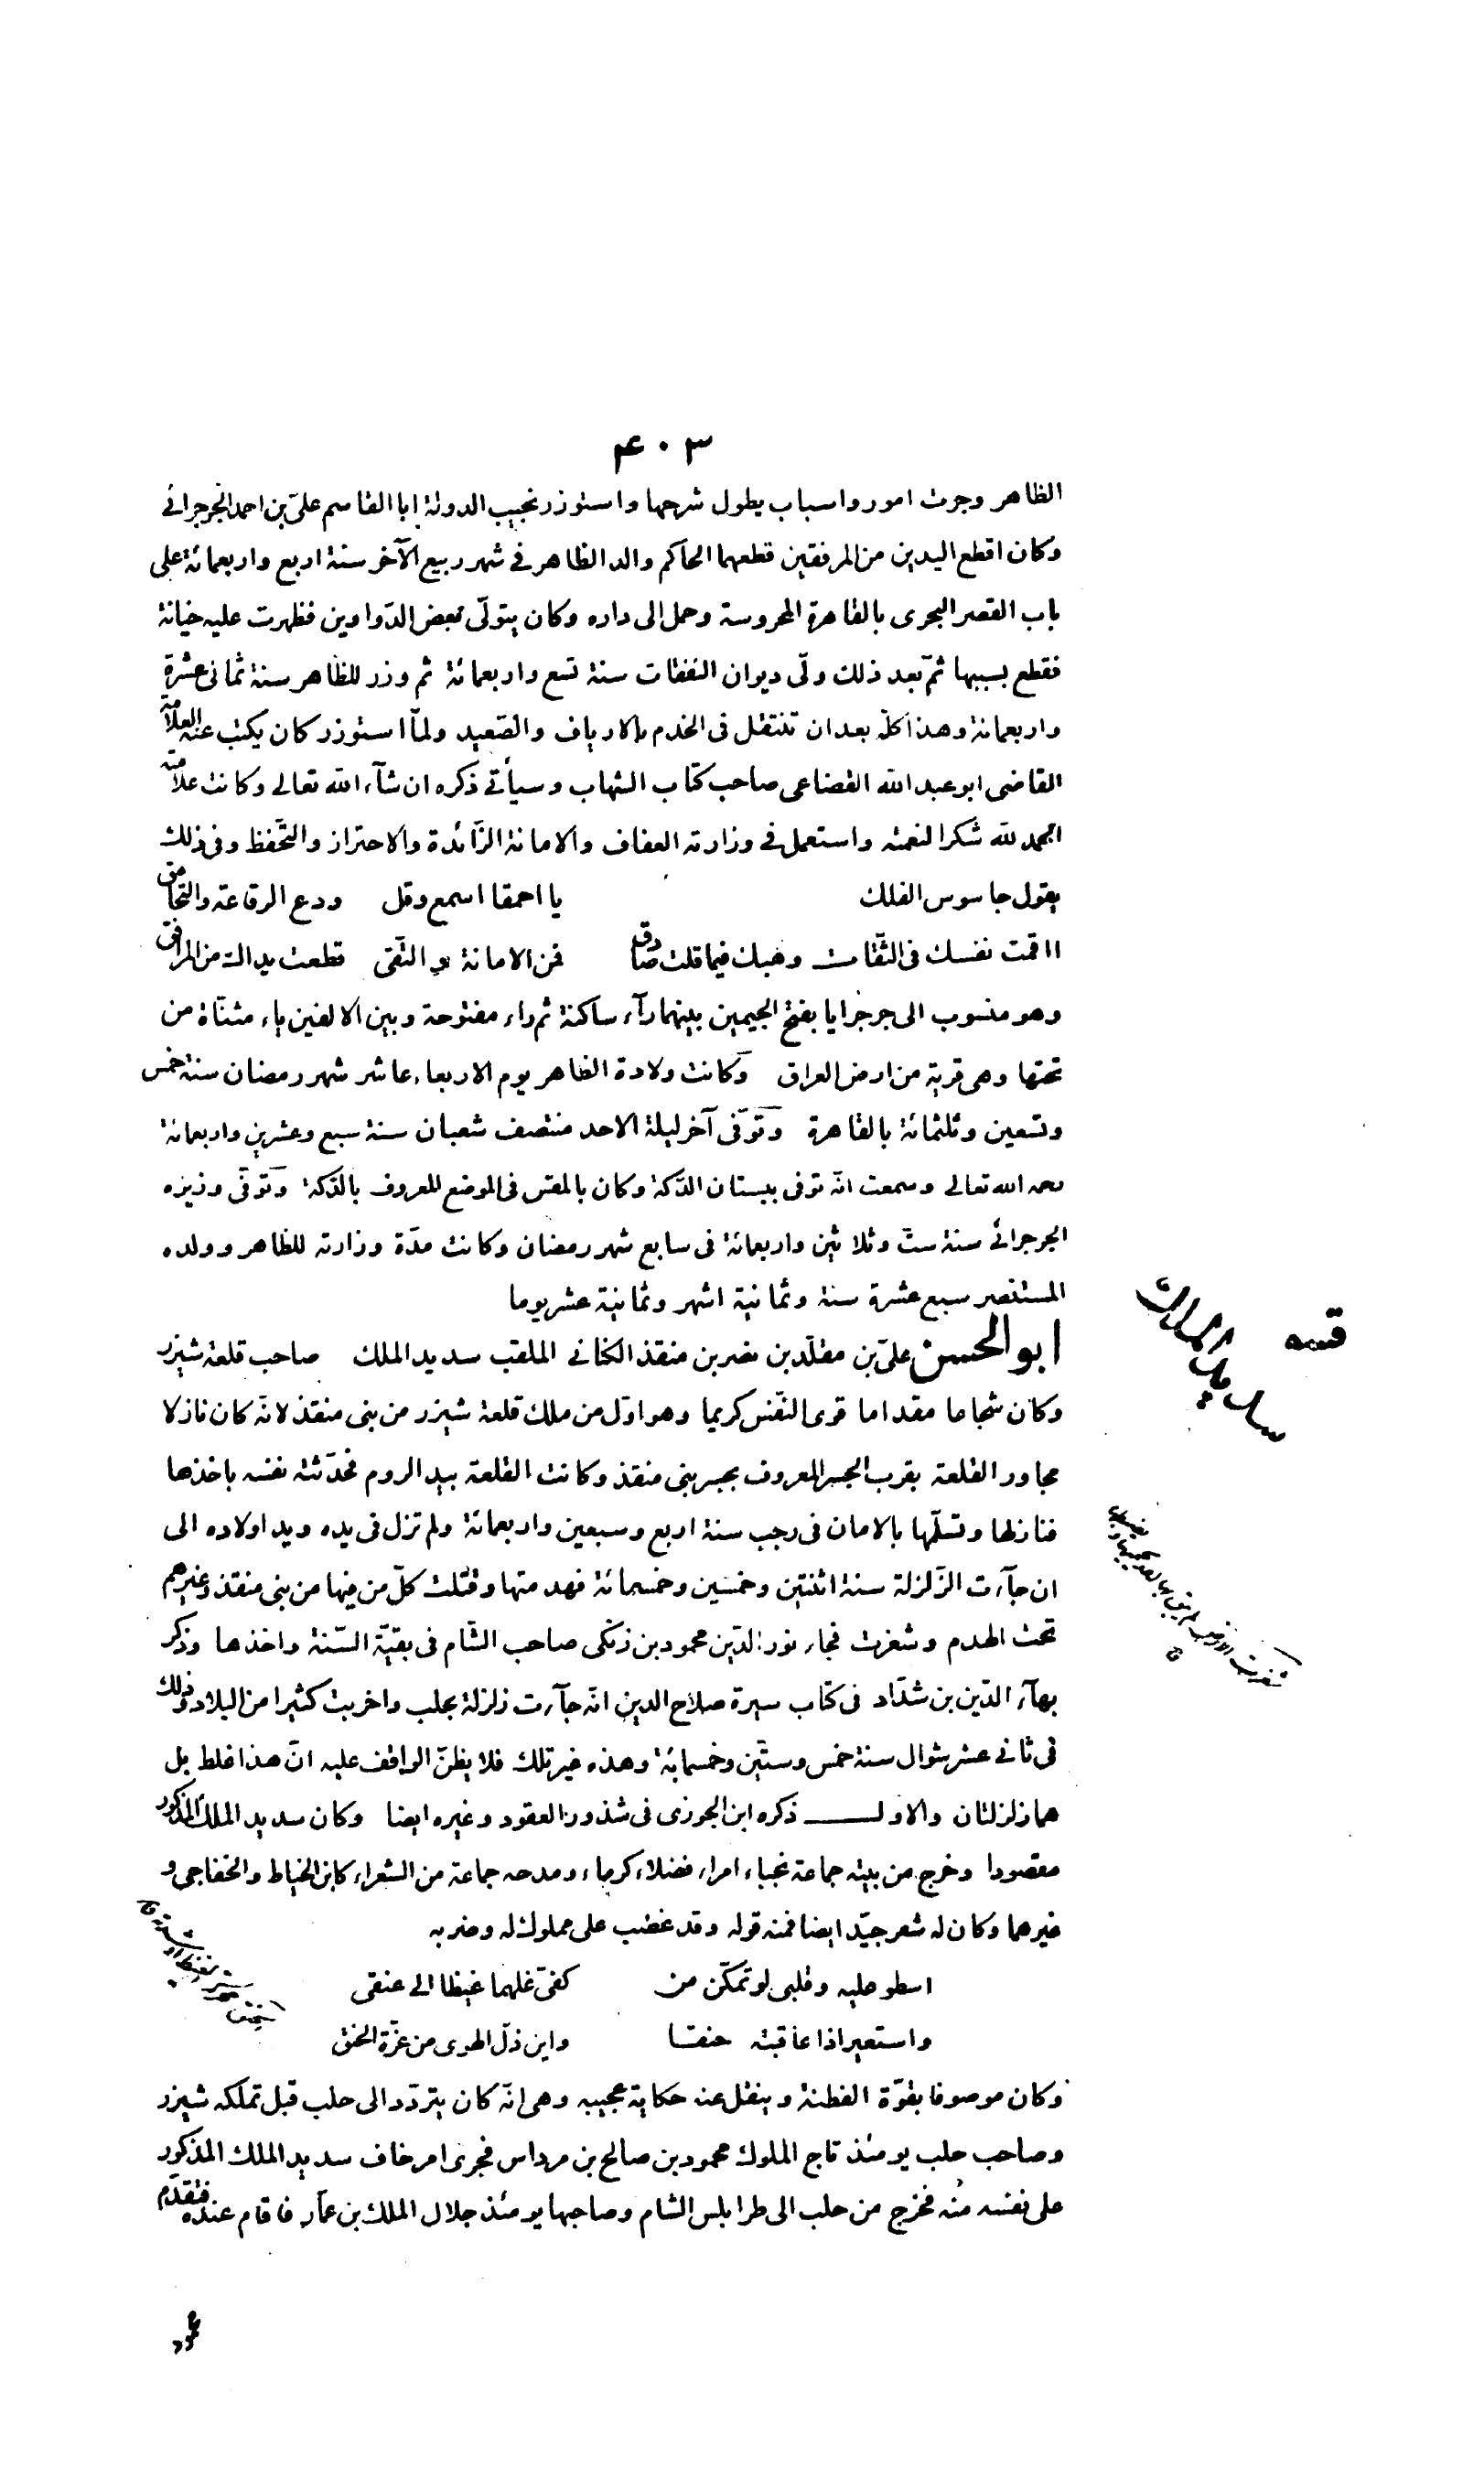 ۴۰۳
الظاهر وجرت امور واسباب يطول شرحها واستوزر نجيب الدولة ابا القاسم علىّ بن احمد الجرجرائى
وكان اقطع اليدين من المرفقين قطعهما الحاكم والد الظاهر فى شهر ربيع الآخر سنة اربع واربعمائة على
باب القصر البحرى بالقاهرة المحروسة وحمل الى داره وكان يتولّى بعض الدّواوين فظهرت عليه خيانة
فقطع بسببها ثمّ بعد ذلك ولّى ديوان النفقات سنة تسع واربعمائة ثم وزر للظاهر سنة ثمانى عشرة
واربعمائة وهذا كلّه بعد ان تنتقل فى الخدم بالارياف والصّعيد ولمّا استوزر كان يكتب عنه العلامة
القاضى ابو عبد الله القضاعى صاحب كتاب الشهاب وسيأتى ذكره ان شآء الله تعالى وكانت علامته
الحمد لله شكرا لنعمته واستعمل فى وزارته العفاف والامانة الزّائدة والاحتراز والتّحفظ وفى ذلك
يقول جاسوس الفلك يا احمقا اسمع وقل ودع الرقاعة والتحامق
ااقمت نفسك فى الثّقات وهبك فيما قلت صادق فمن الامانة والتّقى قطعت يداك من المرافق
وهو منسوب الى جرجرايا بفتح الجيمين بينهما رآء ساكنة ثم راء مفتوحة وبين الالفين ياء مثنّاة من
تحتها وهى قرية من ارض العراق وكانت ولادة الظاهر يوم الاربعاء عاشر شهر رمضان سنة خمس
وتسعين وثلثمائة بالقاهرة وتوّفى آخر ليلة الاحد منتصف شعبان سنة سبع وعشرين واربعمائة
رحمه الله تعالى وسمعت انّه توفى ببستان الدّكة وكان بالمقس فى الموضع المعروف بالدّكة وتوفّى وزيره
الجرجرائى سنة ستّ وثلاثين واربعمائة فى سابع شهر رمضان وكانت مدّة وزارته للظاهر وولده
المستنصر سبع عشرة سنة وثمانية اشهر وثمانية عشر يوما
قصه سديد الملك
ابو الحسن علىّ بن مقلّد بن نصر بن منقذ الكنانى الملقب سديد الملك صاحب قلعة شيزر
وكان شجاعا مقداما قوى النّفس كريما وهو اوّل من ملك قلعة شيزر من بنى منقذ لانّه كان نازلا
مجاور القلعة بقرب الجسر المعروف بجسر بنى منقذ وكانت القلعة بيد الروم فحدّثته نفسه باخذها
فنازلها وتسلّمها بالامان فى رجب سنة اربع وسبعين واربعمائة ولم تزل فى يده ويد اولاده الى
ان جآءت الزّلزلة سنة اثنتين وخمسين وخمسمائة فهدمتها وقتلت كلّ من فيها من بنى منقذ وغيرهم
تحت الهدم وشغرت فجاء نور الدّين محمود بن زنكى صاحب الشّام فى بقيّة السّنة واخذها وذكر
بهآء الدّين بن شدّاد فى كتاب سيرة صلاح الدين انّه جآءت زلزلة بحلب واخربت كثيرا من البلاد وذلك
فى ثانى عشر شوال سنة خمس وستّين وخمسمائة وهذه غير تلك فلا يظنّ الواقف عليه انّ هذا غلط بل
هما زلزلتان والاولــــ ذكره ابن الجوزى فى شذور العقود وغيره ايضا وكان سديد الملك المذكور
مقصودا وخرج من بيته جماعة نجباء امراء فضلاء كرماء ومدحه جماعة من الشعراء كابن الخياط والخفاجى و
غيرهما وكان له شعر جيّد ايضا فمنه قوله وقد غضب على مملوك له وضربه
اسطو عليه وقلبى لو تمكّن من كفىّ غلهما غيظا الى عنقى
واستعير اذا عاقبته حنقــا واين ذلّ الهوى من عزّة الحنق
وكان موصوفا بقوّة الفطنة وينقل عنه حكاية عجيبه وهى انّه كان يتردّد الى حلب قبل تملكه شيزر
وصاحب حلب يومئذ تاج الملوك محمود بن صالح بن مرداس فجرى امر خاف سديد الملك المذكور
على نفسه منه فخرج من حلب الى طرابلس الشام وصاحبها يومئذ جلال الملك بن عمّار فاقام عنده فتقدّم